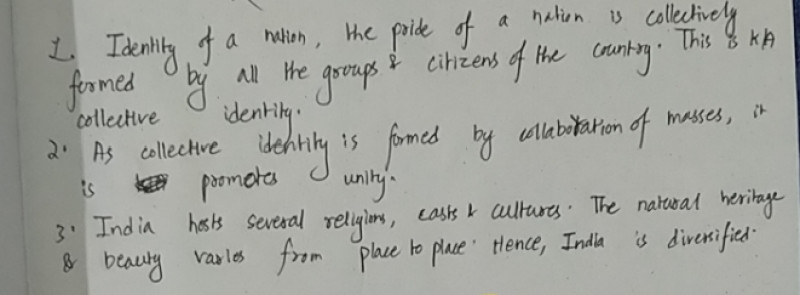 1. Identity of a nation, the pride of a nation is collectively
formed by all the groups & citizens of the country. This is KA
collective identity.
2. As collective identity is formed by collaboration of masses, it
is promotes unity.
3. India hosts several religions, casts & cultures. The natural heritage
& beauty varies from place to place. Hence, India is diversified.